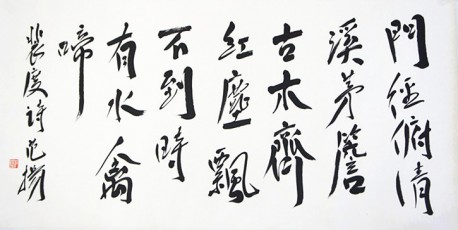 門徑俯清
溪茅簷
古木齊
紅塵飄
不到時
有水禽
啼
裴度詩 范揚